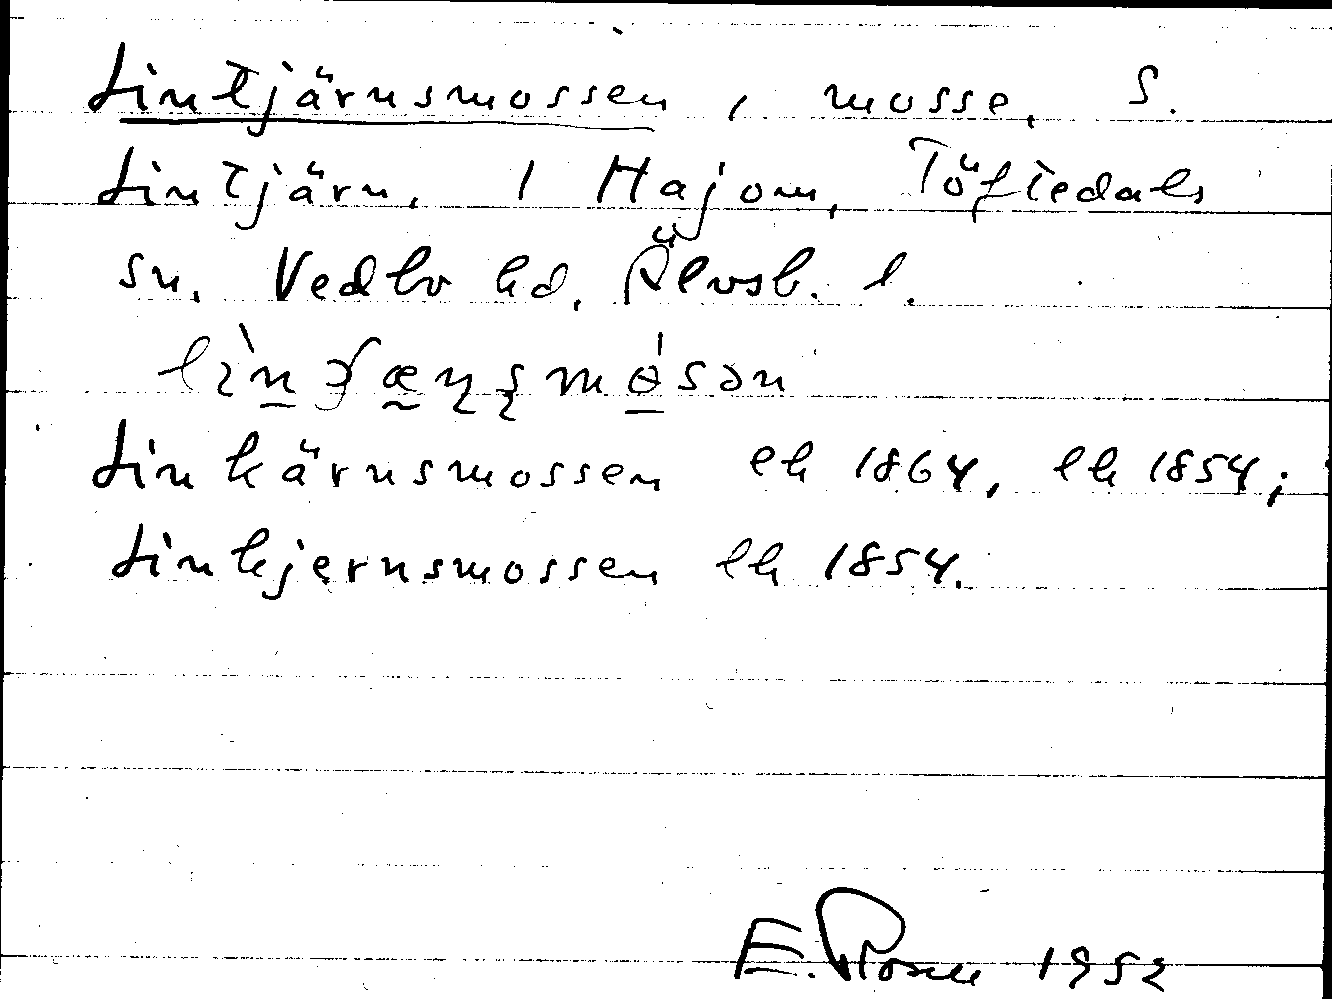 Lintjärnsmossen, mosse, S.
Lintjärn. 1 Hajom, Töftedals
sn. Vedbo hd. Älvsb. l.
Linkärnsmossen ek 1864, lk 1854;
Linkjernsmossen lk 1854.
E. Rosell 1952